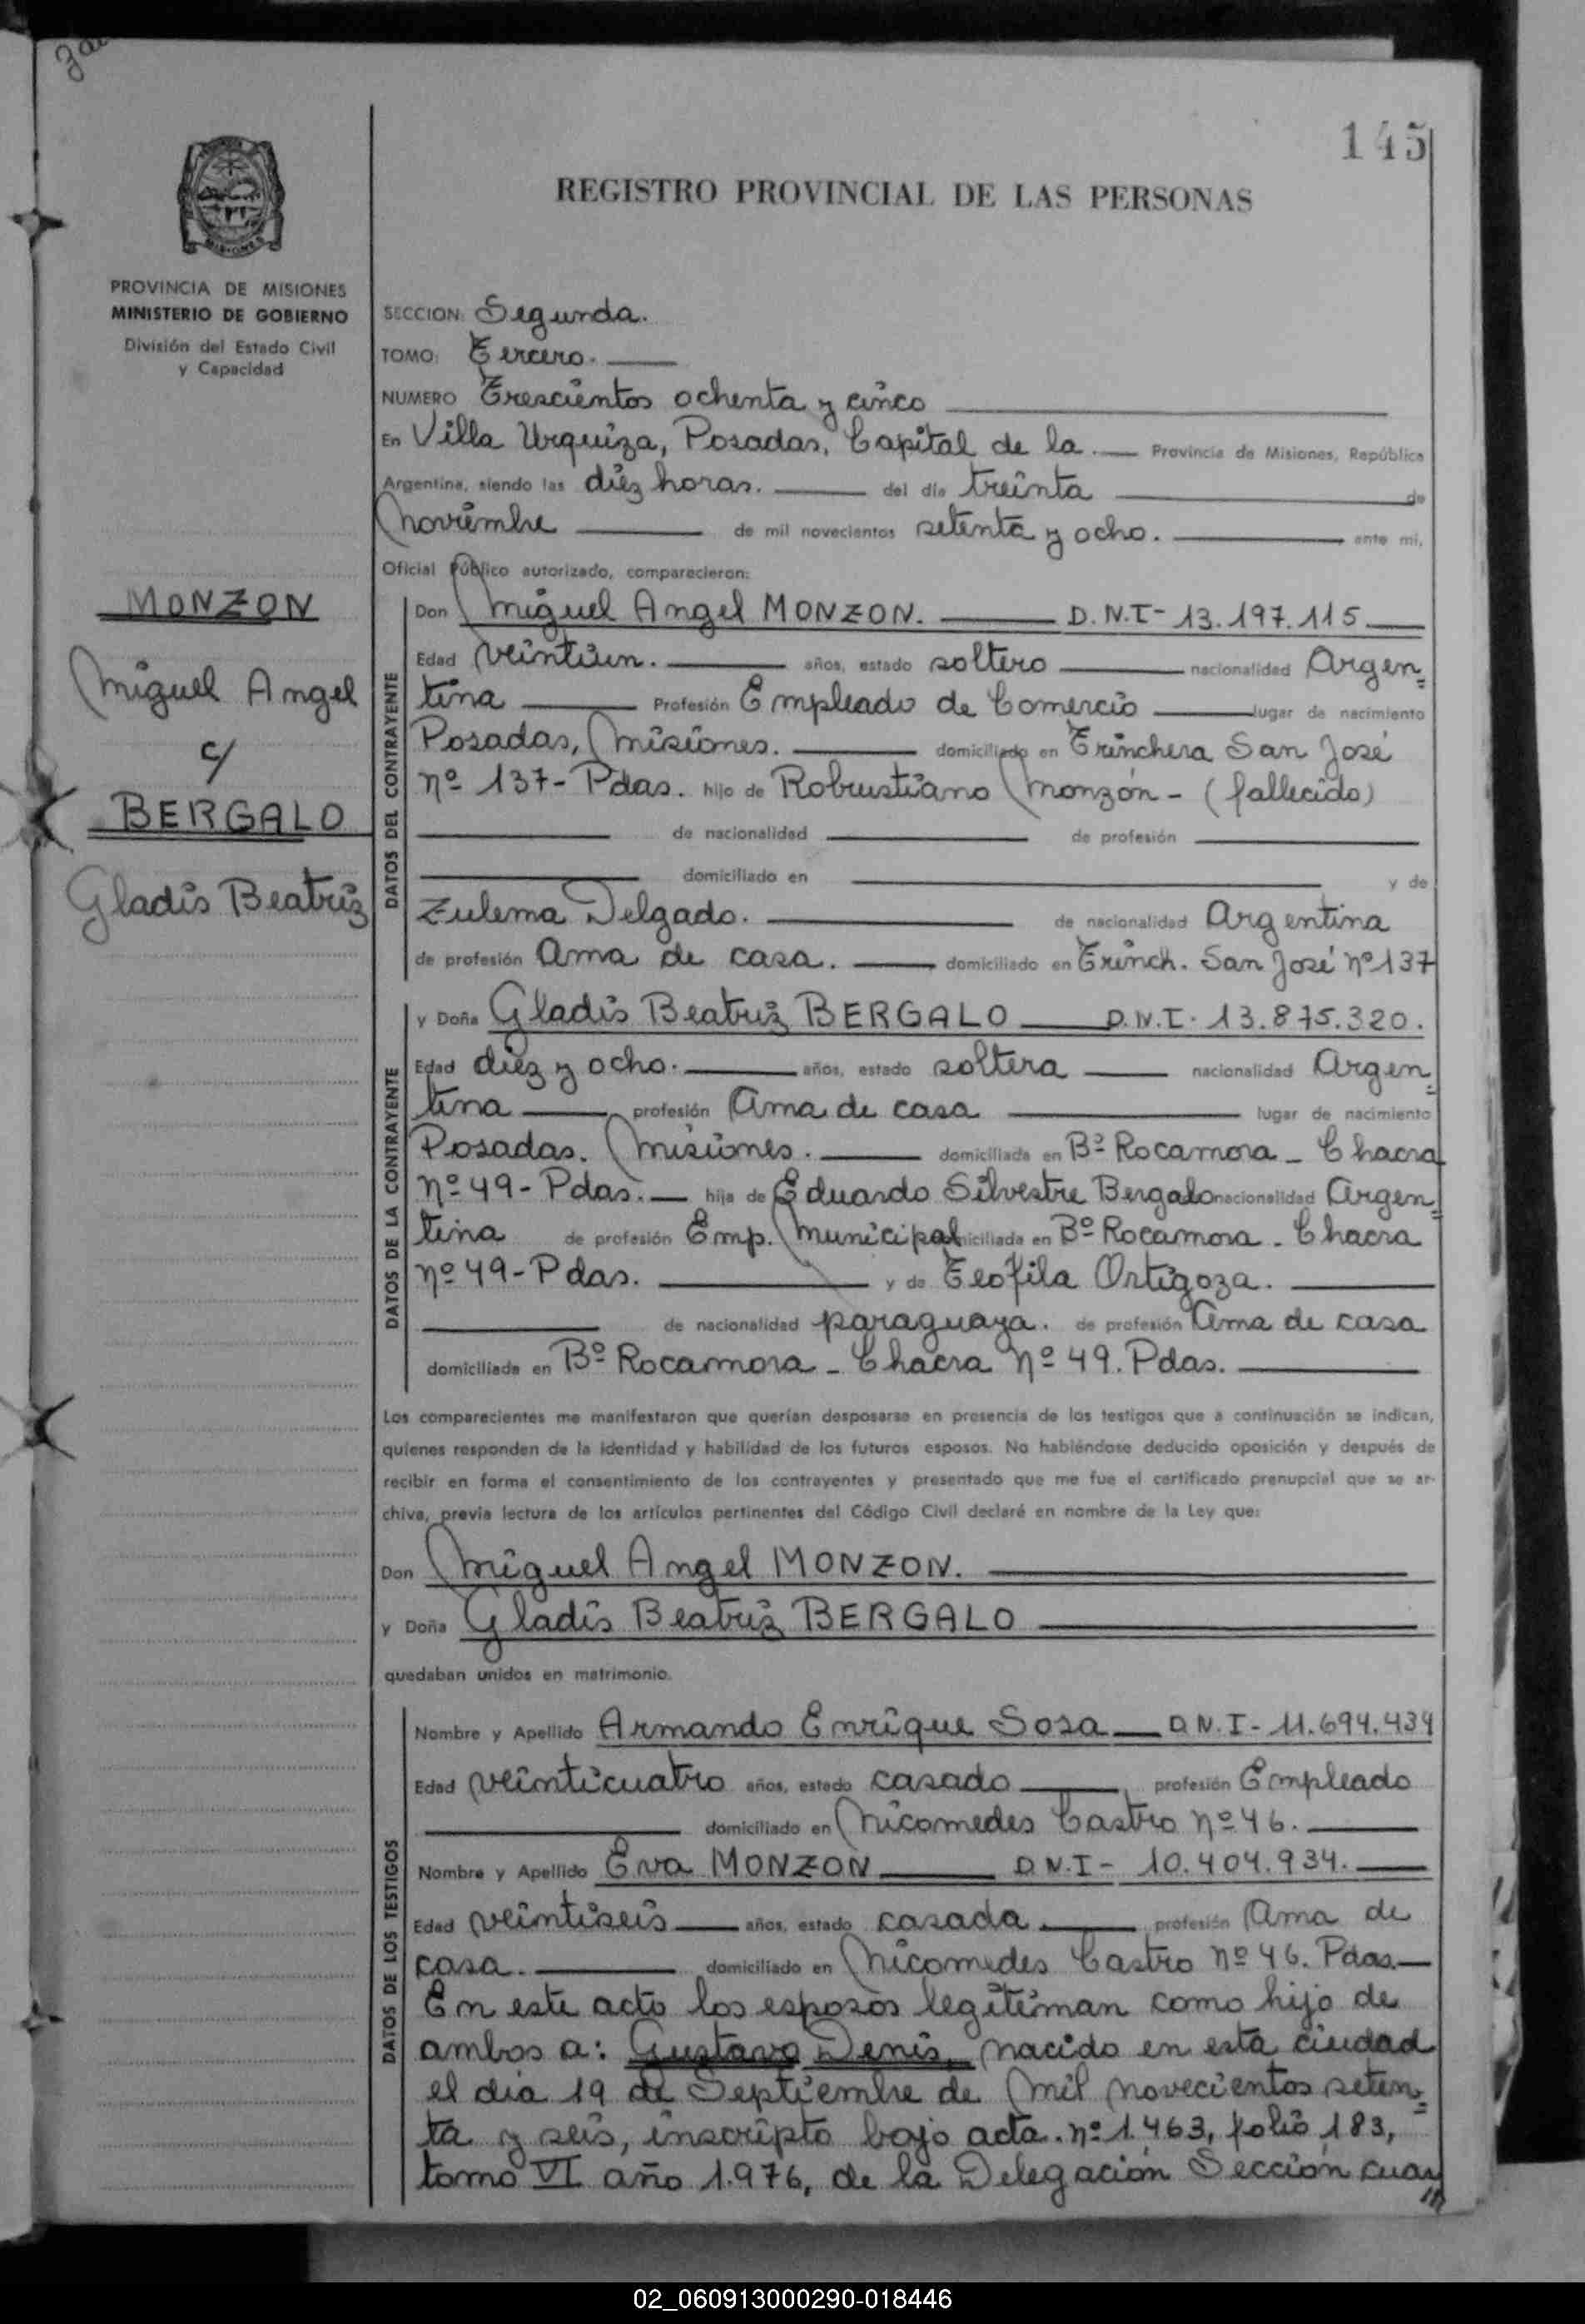 145
REGISTRO PROVINCIAL DE LAS PERSONAS
PROVINCIA DE MISIONES
MINISTERIO DE GOBIERNO
División del Estado Civil
y Capacidad
MONZON
Miguel Angel
c/
BERGALO
Gladis Beatriz
SECCION: Segunda.
TOMO: Tercero.
NUMERO Trescientos ochenta y cinco
En Villa Urquiza, Posadas, Capital de la. Provincia de Misiones, República
Argentina, siendo las diéz horas. del día treinta de
Noviembre de mil novecientos setenta y ocho. ante mi,
Oficial Público autorizado, comparecieron:
DATOS DEL CONTRAYENTE
Don Miguel Angel MONZON. D.N.I- 13.197.115
Edad veintiun. años, estado soltero nacionalidad Argen=
tina Profesión Empleado de Comercio lugar de nacimiento
Posadas, Misiones. domiciliado en Trinchera San José
Nº 137- Pdas. hijo de Robustiano Monzón - (fallecido)
de nacionalidad de profesión
domiciliado en y de
Zulema Delgado. de nacionalidad Argentina
de profesión Ama de casa. domiciliado en Trinch. San José Nº 137
DATOS DE LA CONTRAYENTE
y Doña Gladis Beatriz BERGALO D.N.I. 13.875.320.
Edad diez y ocho. años, estado soltera nacionalidad Argen=
tina profesión Ama de casa lugar de nacimiento
Posadas. Misiones. domiciliada en Bº Rocamora - Chacra
Nº 49- Pdas. hija de Eduardo Silvestre Bergalo nacionalidad Argen=
tina de profesión Emp. Municipal domiciliada en Bº Rocamora - Chacra
Nº 49- Pdas. y de Teofila Ortigoza.
de nacionalidad paraguaya. de profesión Ama de casa
domiciliada en Bº Rocamora - Chacra Nº 49. Pdas.
Los comparecientes me manifestaron que querían desposarse en presencia de los testigos que a continuación se indican,
quienes responden de la identidad y habilidad de los futuros esposos. No habiéndose deducido oposición y después de
recibir en forma el consentimiento de los contrayentes y presentado que me fue el certificado prenupcial que se ar-
chiva, previa lectura de los artículos pertinentes del Código Civil declaré en nombre de la Ley que:
Don Miguel Angel MONZON.
y Doña Gladis Beatriz BERGALO
quedaban unidos en matrimonio.
DATOS DE LOS TESTIGOS
Nombre y Apellido Armando Enrique Sosa D.N.I- 11.694.434
Edad veinticuatro años, estado casado profesión Empleado
domiciliado en Nicomedes Castro Nº 46.
Nombre y Apellido Eva MONZON D.N.I- 10.404.934.
Edad veintiseis años, estado casada. profesión Ama de
casa. domiciliado en Nicomedes Castro Nº 46. Pdas.
En este acto los esposos legitiman como hijo de
ambos a: Gustavo Denis, nacido en esta ciudad
el dia 19 de Septiembre de mil novecientos seten=
ta y seis, inscripto bajo acta. nº 1.463, folio 183,
tomo VI año 1.976, de la Delegación Sección cuar
02_060913000290-018446